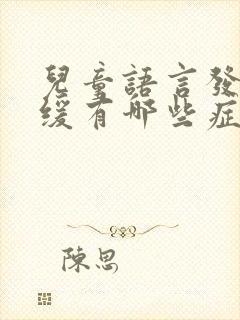 兒童語言發
緩有哪些症
陳思